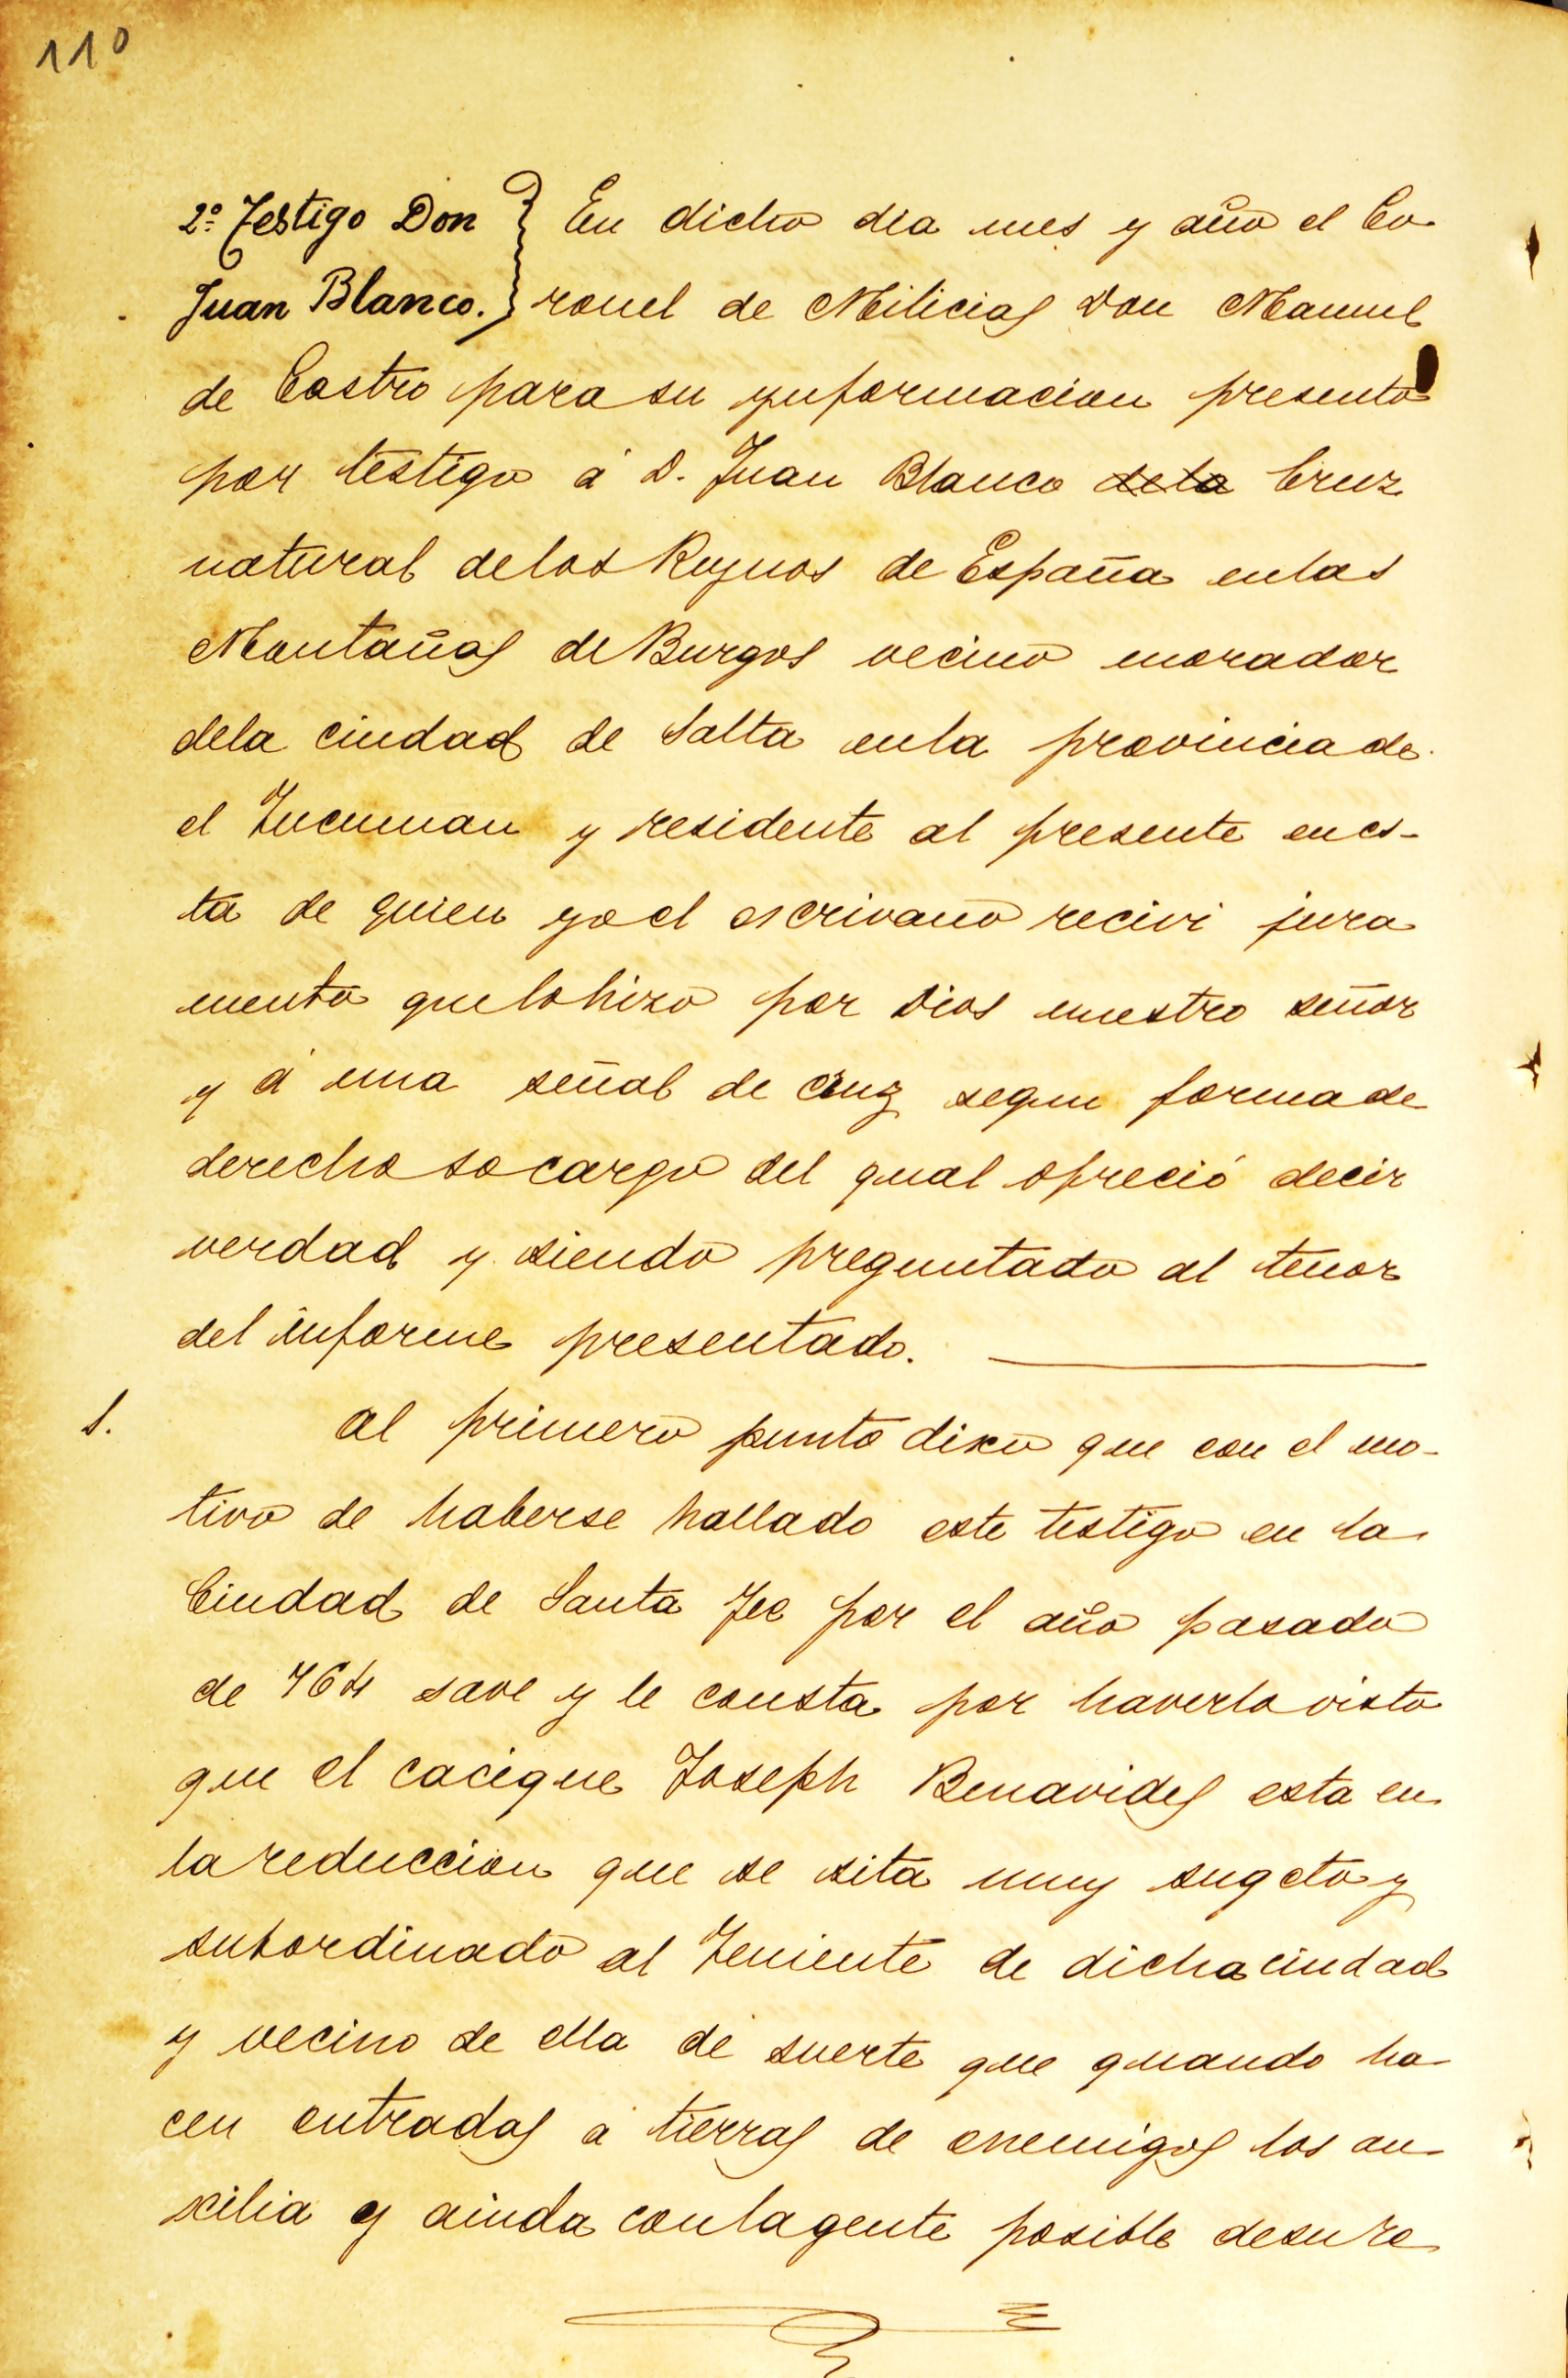 110
2º Testigo Don } En dicho dia mes y año el Co
Juan Blanco. } ronel de Milicias Don Manuel
de Castro para su ynformacion presentó
por testigo á D. Juan Blanco dela Cruz
natural delos Reynos de España enlas
Montañas de Burgos vecino morador
dela ciudad de Salta enla provincia de
el Tucuman y residente al presente en es-
ta de quien yo el escrivano recivi jura
mento que lo hizo por Dios nuestro señor
y á una señal de cruz segun forma de
derecho so cargo del qual ofreció decir
verdad y siendo preguntado al tenor
del informe presentado.
1. al primero punto dixo que con el mo-
tivo de haberse hallado este testigo en la
Ciudad de Santa Fee por el año pasado
de 764 save y le consta por haverlo visto
que el cacique Joseph Benavides esta en
la reduccion que se sita muy sugeto y
subordinado al Teniente de dicha ciudad
y vecino de ella de suerte que quando ha-
cen entradas a tierras de enemigos los au-
xilia y aiuda con la gente posible de su re